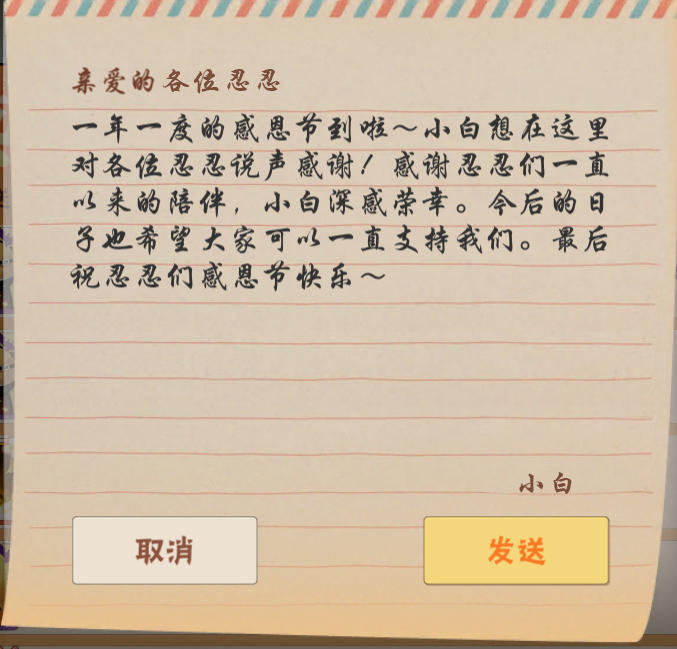 亲爱的各位忍忍
一年一度的感恩节到啦～小白想在这里
对各位忍忍说声感谢！感谢忍忍们一直
以来的陪伴，小白深感荣幸。今后的日
子也希望大家可以一直支持我们。最后
祝忍忍们感恩节快乐～
小白
取消
发送